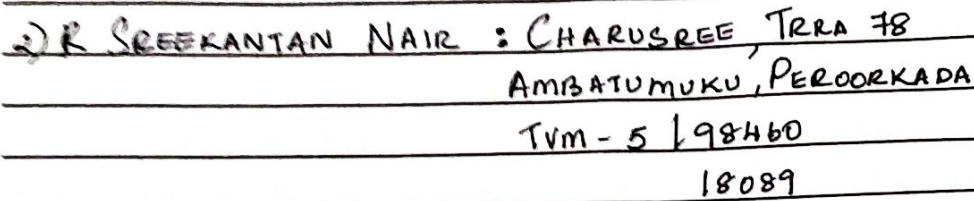 2) R SREEKANTAN NAIR : CHARUSREE, TRRA 78
AMBATUMUKU, PEROORKADA
TVM - 5 | 98460
18089